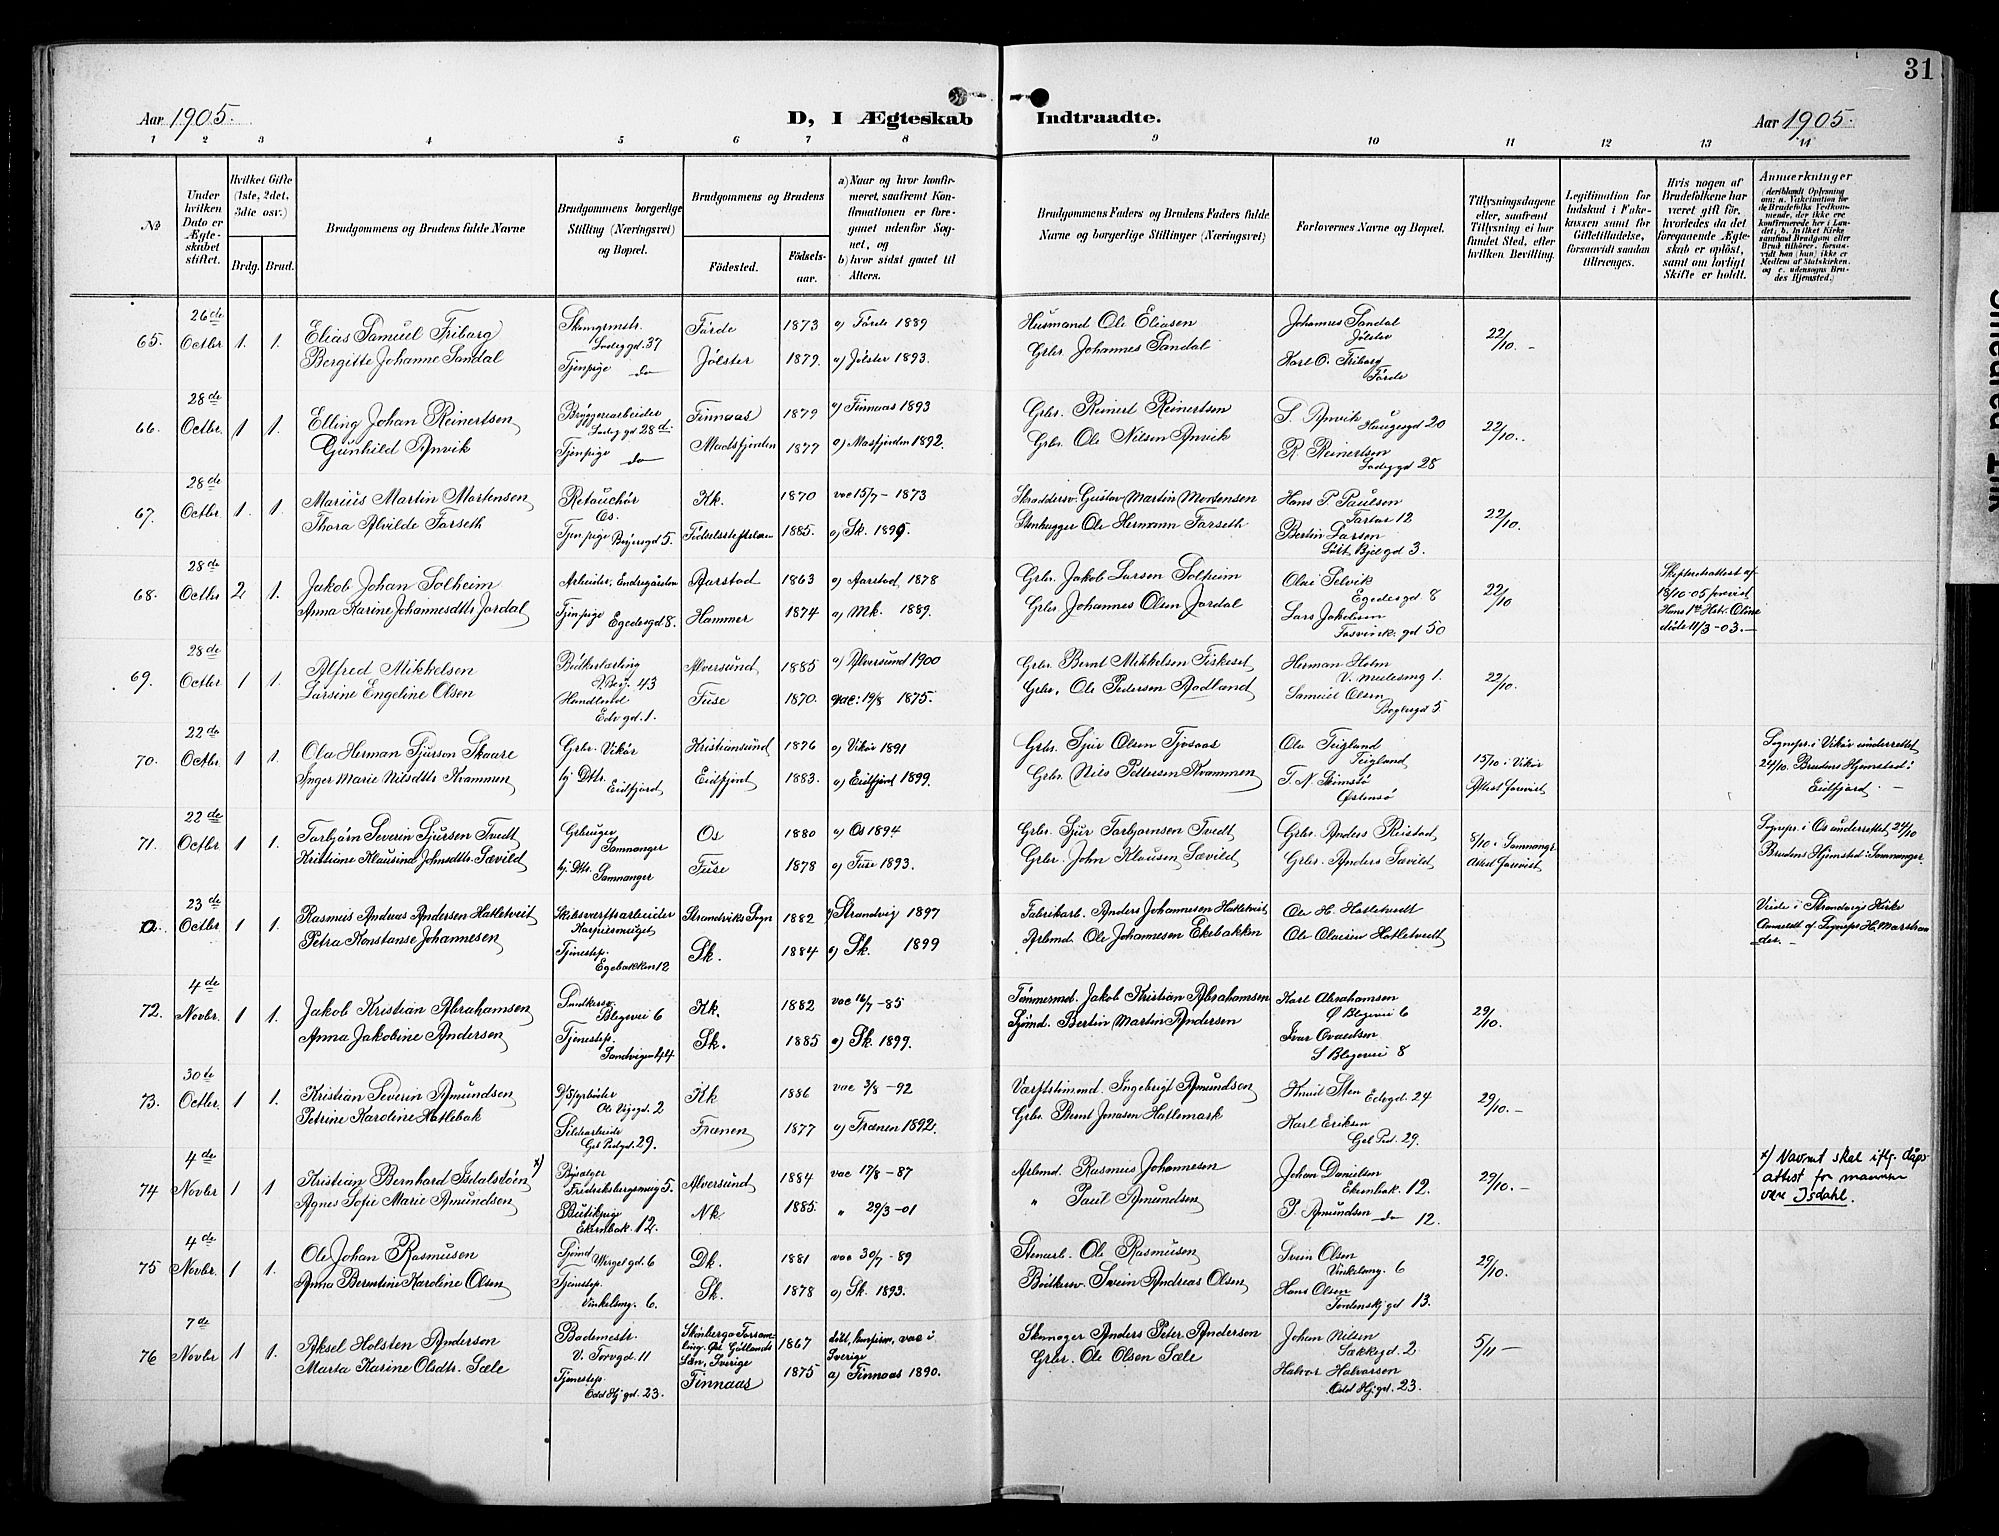 31
Aar 1905. D, I Ægteskab Indtraadte. Aar 1905.
1 2 3 4 5 6 7 8 9 10 11 12 13 14
№
Under hvilken Dato er Ægteskabet stiftet.
Hvilket Gifte (1ste, 2det, 3die osv.)
Brdg. Brud.
Brudgommens og Brudens fulde Navne
Brudgommens borgerlige Stilling (Næringsvei) og Bopæl.
Brudgommens og Brudens
Fødested. Fødselsaar.
a) Naar og hvor konfirmeret, saafremt Konfirmationen er foregaaet udenfor Sognet, og
b) hvor sidst gaaet til Alters.
Brudgommens Faders og Brudens Faders fulde Navne og borgerlige Stillinger (Næringsvei)
Forlovernes Navne og Bopæl.
Tillysningsdagene eller, saafremt Tillysning ei har fundet Sted, efter hvilken Bevilling.
Legitimation for Indskud i Enkekassen samt for Giftetilladelse, forsaavidt saadan tiltrænges.
Hvis nogen af Brudefolkene har været gift før, hvorledes da det foregaaende Ægteskab er opløst, samt om lovligt Skifte er holdt.
Anmærkninger (deriblandt Oplysning om: a. Vakcination for de Brudefolks Vedkommende, der ikke ere konfirmerede her i Landet; b. hvilket Kirkesamfund Brudgom eller Brud tilhører, forsaavidt han (hun) ikke er Medlem af Statskirken, og c. udensogns Brudes Hjemsted.)
65. 26de Octbr 1. 1.
Elias Samuel Friborg Ladegd 37 Førde 1873 a) Førde 1889 Husmand Ole Eliasen Johannes Sandal Jølster 22/10. -
Bergitte Johanne Sandal Tjenpige do Jølster 1879. a) Jølster 1893. Grbr Johannes Sandal Karl O. Friborg Førde
66. 28de Octbr. 1 1.
Elling Johan Reinertsen Bryggeriarbeider Ladegd 28 Finnaas 1879 a) Finnaas 1893 Grbr. Reinert Reinertsen S. Anvik Haugesgd 20 22/10.
Gunhild Anvik Tjenpige do Masfjorden 1877 a) Masfjorden 1892. Grbr. Ole Nilsen Anvik R Reinertsen Ladegd 28
67. 28de Octbr 1. 1.
Marius Martin Mortensen Retouchør Os. Kk. 1870 vac 15/7 - 1873 Gustav Martin Mortensen Hans P. Paulsen 12 22/10.
Thora Alvilde Farseth Tjenpige 5. Fødselsstiftelsen 1885. a) Sk. Stenhugger Ole Hermann Farseth Bertin Larsen 3.
68. 28de Octbr 2 1.
Jakob Johan Solheim Arbeider, Aarstad 1863 a) Aarstad 1878 Grbr. Jakob Larsen Solheim Egedesgd 8 22/10
Anna Karine Johannesdtr Jordal Tjenpige Egedesgd 8. Hammer 1874 a) Mk. 1889. Grbr Johannes Olsen Jordal Lars Jakobsen 50
Skifteretsattest af 18/10-05 forevist Hans 1ste Hstr. Oline døde 11/3-03.-
69. 28de Octbr 1 1.
Alfred Mikkelsen Bødkerlærling 43 Alversund 1885 a) Alversund 1900 Grbr Bernt Mikkelsen Herman Holm 1. 22/10.
Larsine Engeline Olsen 1. Fuse 1870. vac: 19/8 1875. Grbr. Ole Pedersen Aadland Samuel Olsen 5
70. 22de Octbr. 1 1.
Ola Herman Sjursen Skaare Grbr. Vikør Kristiansund 1876 a) Vikør 1891 Grbr Sjur Olsen Ola Teigland Teigland 15/10 i Vikør
Inger Marie Nilsdtr Kvammen hj Dtr. Eidfjord Eidfjord 1883. a) Eidfjord 1899. Grbr. Nils Pettersen Kvammen Østensø Attest forevist
Sognepr. i Vikør underrettet 24/10. Brudens Hjemsted: Eidfjord. -
71. 22de Octbr 1 1.
Torbjørn Severin Sjursen Tvedt Grbruger Samnanger Os 1880 a) Os 1894 Grbr. Sjur Torbjørnsen Tvedt Grbr. Anders Reistad 8/10 i Samnanger
Kristiane Klausine Johnsdtr. Sævild hj. Dtr. Samnanger Fuse 1878 a) Fuse 1893. Grbr. John Klausen Sævild Grbr. Anders Sævild Attest forevist
Sognepr. i Os underrettet 24/10 Brudens Hjemsted: Samnanger.
a. 23de Octbr 1 1.
Rasmus Andreas Andersen Hatletveit Skibsverftsarbeider Strandviks Sogn 1882 a) Strandvig 1897 Fabrikarb. Anders Johannesen Hatletveit Ole H. Hatletvedt
Petra Konstanse Johannesen Tjenestep. Egebakken 12 Sk. 1884 a) Sk. 1899 Arbmd. Ole Johannesen Ekebakken Ole Olaisen Hatletvedt
Viede i Strandvigs Kirke Anmeldt af Sognepr H. Marstrander. -
72. 4de Novbr. 1 1.
Jakob Kristian Abrahamsen Blegevei 6 Kk. 1882 vac 16/7 - 85 Tømmermd. Jakob Kristian Abrahamsen Karl Abrahamsen Ø Blegevei 6 29/10.
Anna Jakobine Andersen Tjenestep. Sandvigen 44 Sk. 1885 a) Sk. 1899. Sjømd. Bertin Martin Andersen Ivar S Blegevei 8
73. 30te Octbr 1 1.
Kristian Severin Amundsen 2 Kk 1886 vac 3/8 - 92 Ingebrigt Amundsen Knud Sten 24 29/10. -
Petrine Karoline Hatlebak 29. Frænen 1877 a) Frænen 1892. Grbr Bernt Jonasen Hatlemark Karl Eriksen 29.
74 4de Novbr 1 1
Kristian Bernhard Isdalstøen x) 5. Alversund 1884 vac 17/8 - 87 Arbmd. Rasmus Johannesen Johan Danielsen Ekrenbak. 12. 29/10. -
Agnes Sofie Marie Amundsen Butikpige Ekrenbak 12. Nk. 1885. " 29/3-01 " Paul Amundsen P Amundsen do 12.
x) Navnet skal iflg. dåpsattest for mannen være Isdahl.
75 4de Novbr. 1 1.
Ole Johan Rasmusen Sjømd Wergelgd. 6 Dk. 1881 vac 30/7 - 89 Stenarb. Ole Rasmusen Svein Olsen Vinkelsmg. 6 29/10.
Anna Berntine Karoline Olsen Tjenestep. Vinkelsmg. 6. Sk. 1878 a) Sk. 1893. Bødkersv. Svein Andreas Olsen Hans Olsen Tordenskj gd 13.
76 7de Novbr 1 1.
Aksel Holsten Andersen Bademestr. V. Torvgd. 11 Sverige 1867 vac i Sverige Skomager Anders Peter Andersen Johan Nilsen 2 5/11 -
Marta Karine Olsdtr. Sæle Tjenestep. 23. Finnaas 1875 a) Finnaas 1890. Grbr. Ole Olsen Sæle Halvor Halvorsen 23.